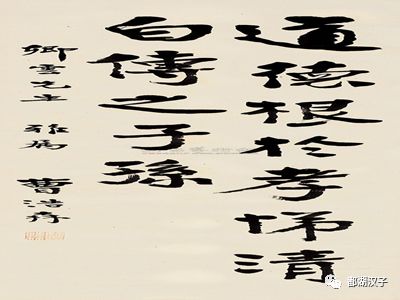 道德根於孝悌清
白傳之子孫
卿雲先生 雅屬 曹浩森
鄱湖汉子